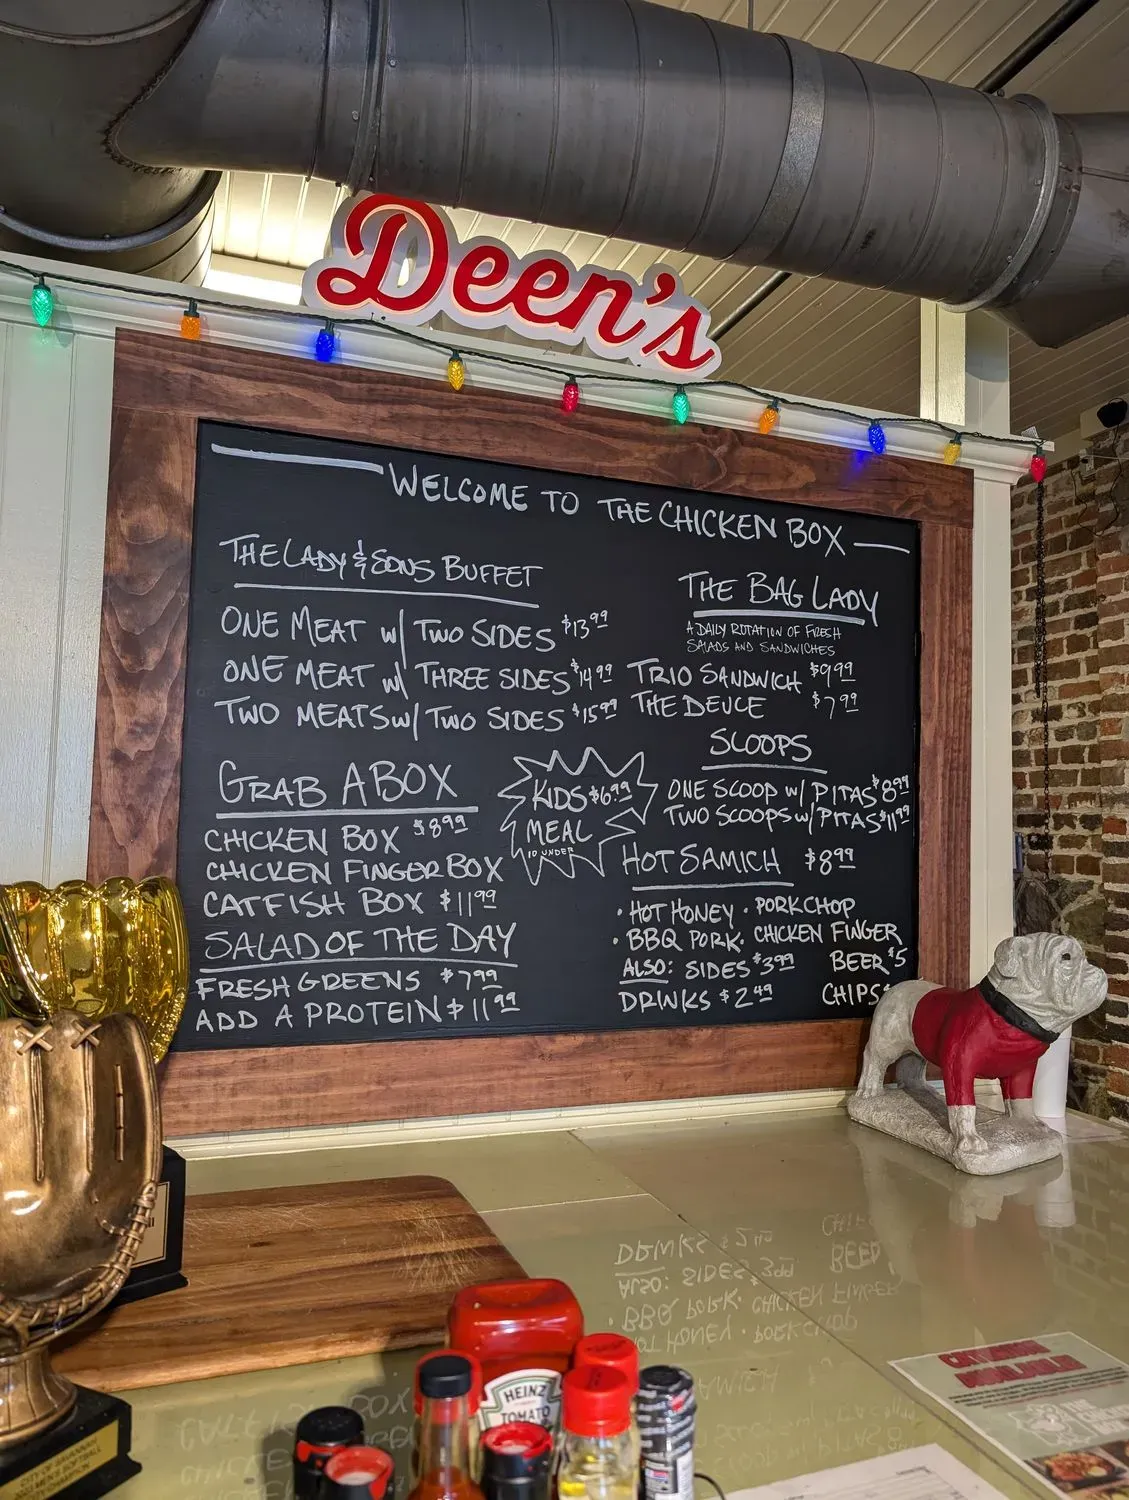 Deen's
WELCOME TO THE CHICKEN BOX
THE LADY & SONS BUFFET
ONE MEAT w/ TWO SIDES $13.99
ONE MEAT w/ THREE SIDES $14.99
TWO MEATS w/ TWO SIDES $15.99
GRAB A BOX
CHICKEN BOX $8.99
CHICKEN FINGER BOX
CATFISH BOX $11.99
SALAD OF THE DAY
FRESH GREENS $7.99
ADD A PROTEIN $11.99
KIDS $6.99
MEAL
10 UNDER
THE BAG LADY
A DAILY ROTATION OF FRESH
SALADS AND SANDWICHES
TRIO SANDWICH $9.99
THE DEUCE $7.99
SCOOPS
ONE SCOOP w/ PITAS $8.99
TWO SCOOPS w/ PITAS $11.99
HOT SAMICH $8.99
• HOT HONEY • PORKCHOP
• BBQ PORK • CHICKEN FINGER
ALSO: SIDES $3.99 BEER $5
DRINKS $2.49 CHIPS $
HEINZ
TOMATO
CITY OF SAVANNAH
CATERING
AVAILABLE